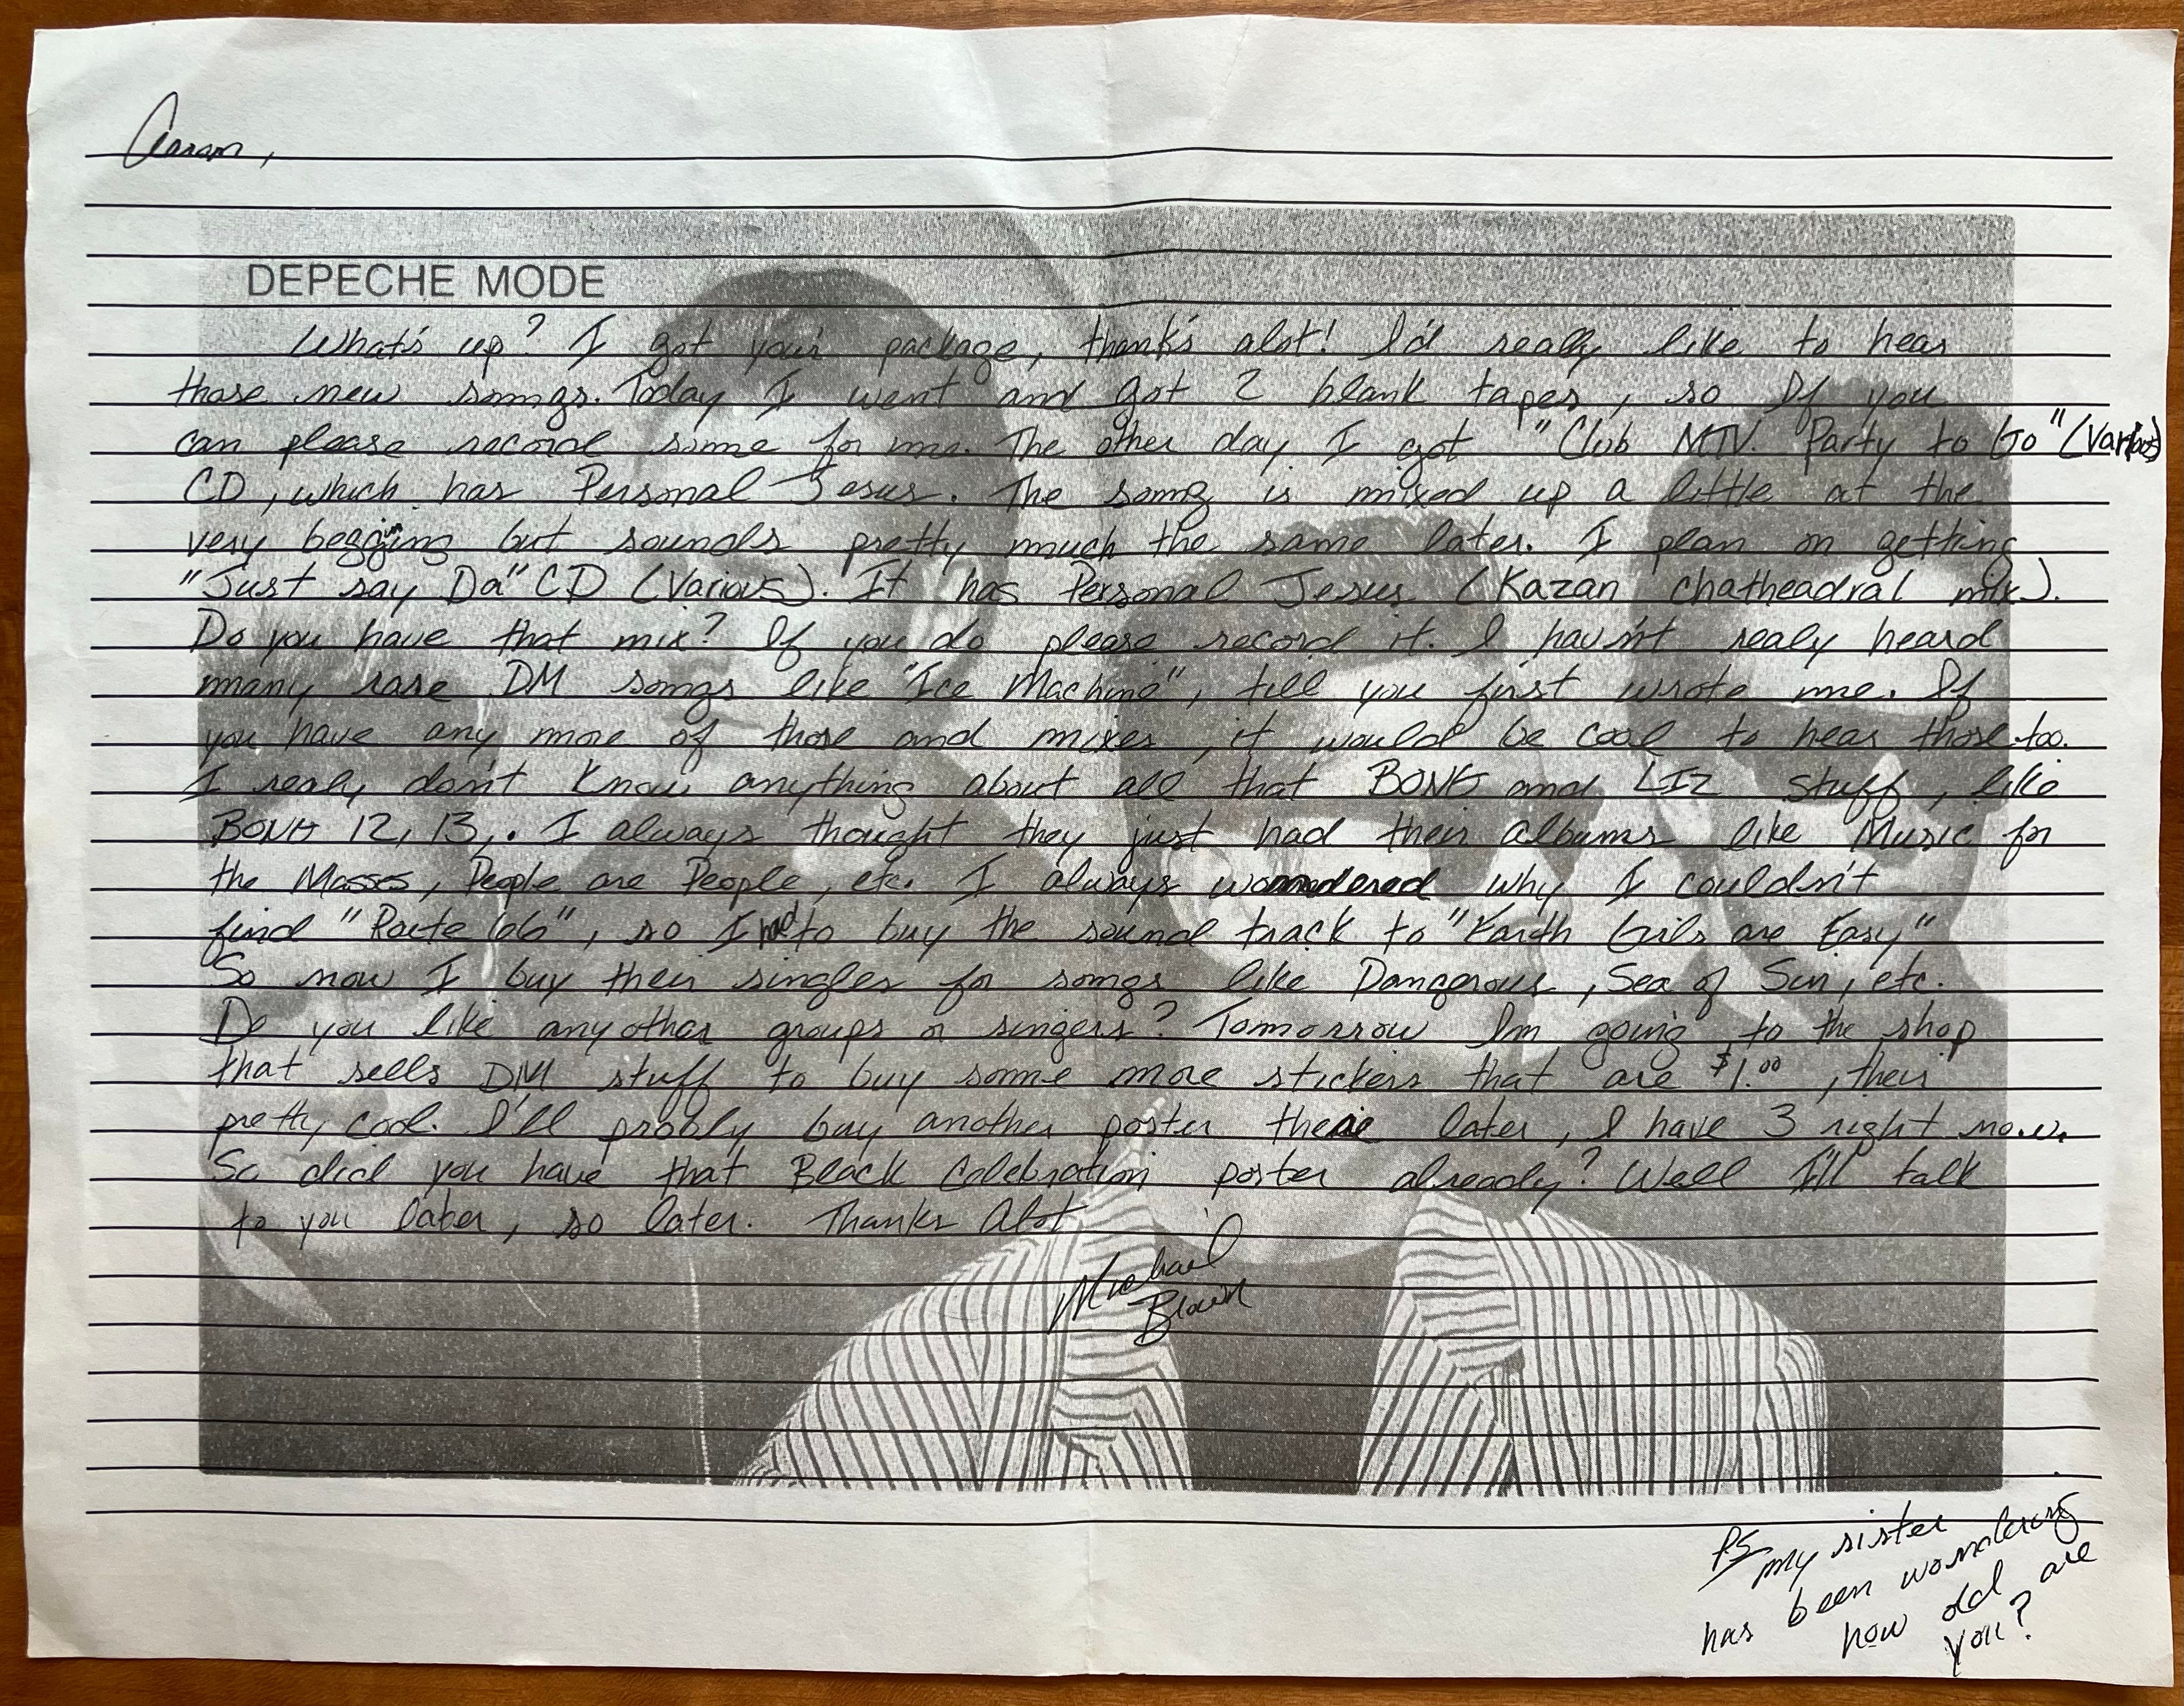 Aaron,
DEPECHE MODE
What's up? I got your package, thank's alot! I'd really like to hear
those new songs. Today I went and got 2 blank tapes, so If you
can please record some for me. The other day I got "Club MTV. Party to Go" (Various)
CD, which has Personal Jesus. The song is mixed up a little at the
very beggining but sounds pretty much the same later. I plan on getting
"Just say Da" CD (Various). It has Personal Jesus (Kazan chatheadral mix).
Do you have that mix? If you do please record it. I hav'nt realy heard
many rare DM songs like "Ice Machine", till you first wrote me. If
you have any more of those and mixes, it would be cool to hear those too.
I realy don't know anything about all that BONG and LIZ stuff, like
BONG 12, 13,. I always thought they just had their albums like Music for
the Masses, People are People, etc. I always wondered why I couldn't
find "Route 66", so I had to buy the sound track to "Earth Girls are Easy"
So now I buy their singles for songs like Dangerous, Sea of Sin, etc.
Do you like any other groups or singers? Tomorrow Im going to the shop
that sells DM stuff to buy some more stickers that are $1.00, their
pretty cool. I'll probly buy another poster there later, I have 3 right now.
So did you have that Black Celebration poster already? Well I'll talk
to you later, so later. Thanks Alot
Michael
Brown
PS my sister
has been wondering
how old are
you?